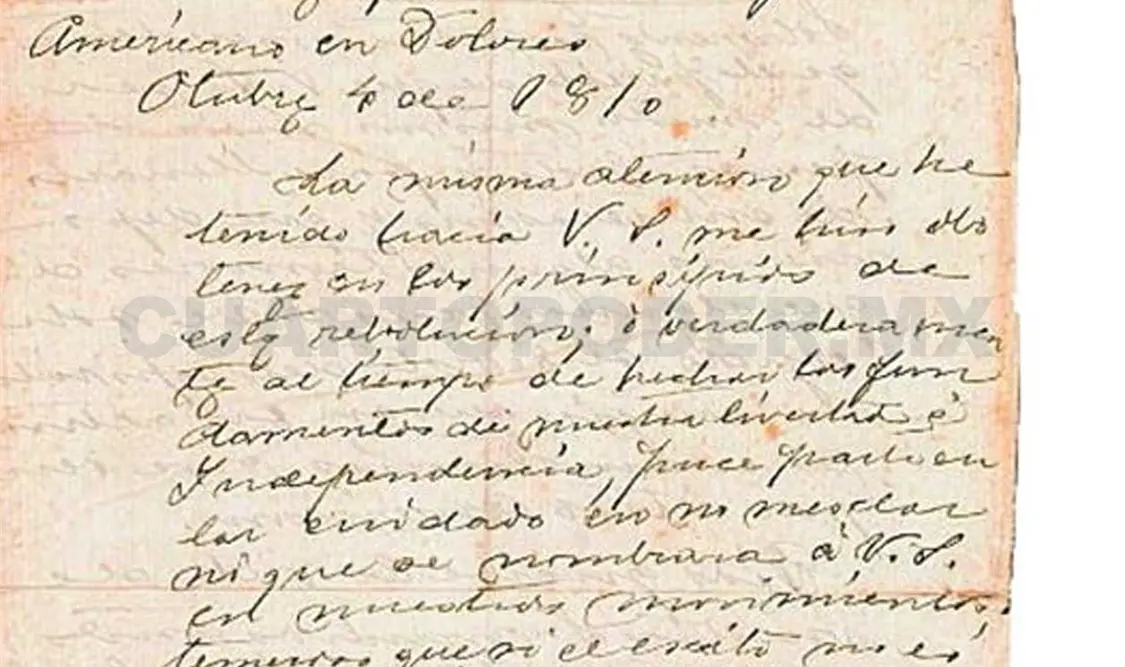 Américano en Dolores
Otubre 4 de 1810.
La misma atención que he
tenido hacia V. S. me hiso obs
tener en los prinsipios de
esta rebolución; ó verdaderamen
te al tiempo de hechar los fun
damentos de nuestra livertad é
Independencia, puce particu
lar cuidado en no mesclar
ni que se nombrara á V. S.
en nuestros movimientos:
temeroso que si el exsito no es
CUARTOPODER.MX